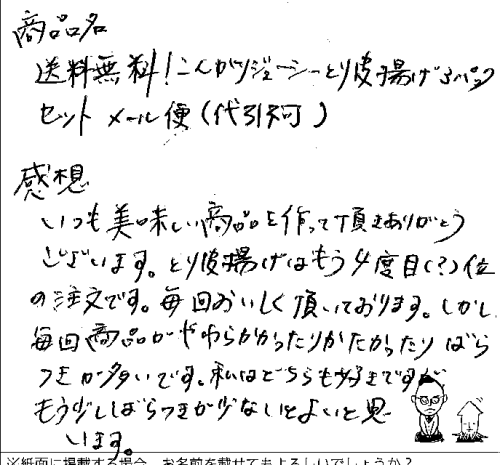 商品名
送料無料!こんがりジューシーとり皮揚げ3パック
セット メール便(代引不可)
感想
いつも美味しい商品を作って頂きありがとう
ございます。とり皮揚げはもう4度目(?)位
の注文です。毎回おいしく頂いております。しかし
毎回商品がやわらかかったりかたかったり ばら
つきが多いです。私はどちらも好きですが
もう少しばらつきが少ないとよいと思
います。
※紙面に掲載する場合、お名前を載せてもよろしいでしょうか?